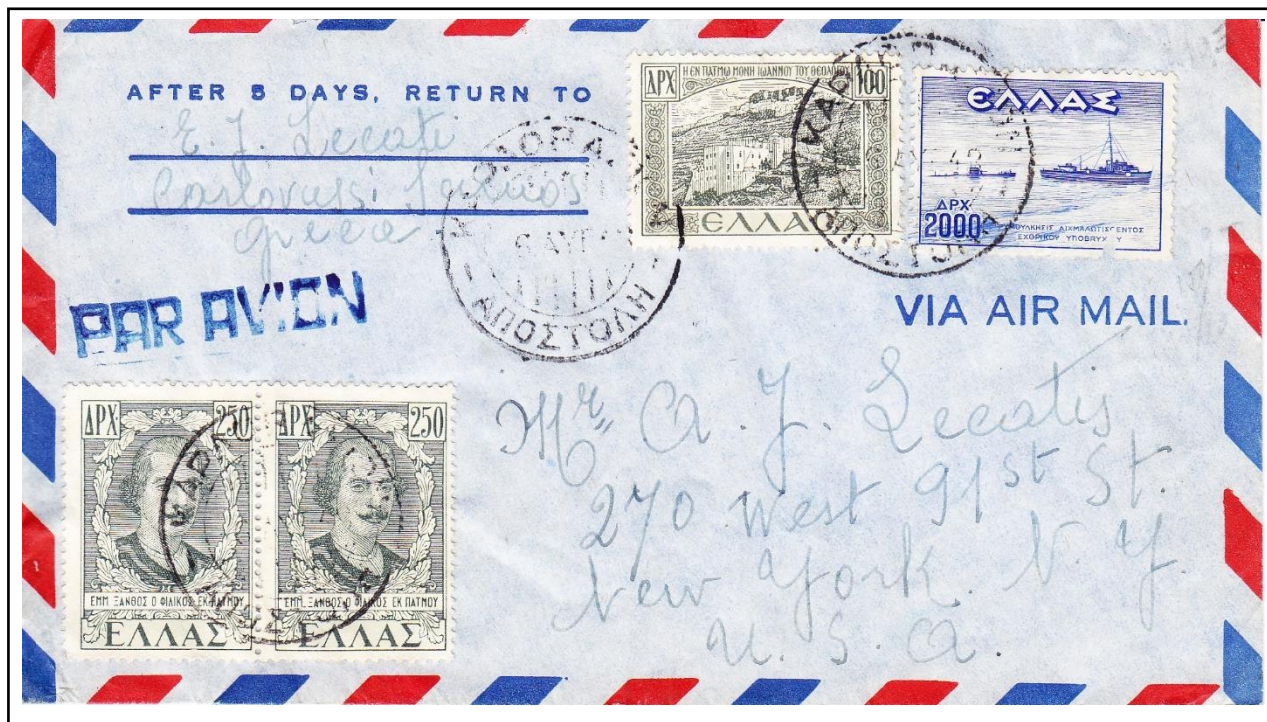 AFTER 5 DAYS, RETURN TO
E. J. Lecati
Greece
PAR AVION
ΔΡΧ Η ΕΝ ΠΑΤΜΩ ΜΟΝΗ ΙΩΑΝΝΟΥ ΤΟΥ ΘΕΟΛΟΓΟΥ 100
ΕΛΛΑΣ
ΕΛΛΑΣ
ΔΡΧ.
2000
ΕΧΘΡΙΚΟΥ ΥΠΟΒΡΥΧ Υ
6 ΑΥΓ
ΑΠΟΣΤΟΛΗ
VIA AIR MAIL.
ΔΡΧ. 250
ΕΜΜ. ΞΑΝΘΟΣ Ο ΦΙΛΙΚΟΣ ΕΚ ΠΑΤΜΟΥ
ΕΛΛΑΣ
ΔΡΧ. 250
ΕΜΜ. ΞΑΝΘΟΣ Ο ΦΙΛΙΚΟΣ ΕΚ ΠΑΤΜΟΥ
ΕΛΛΑΣ
Mr. A. J. Lecatis
270 West 91st St.
New York. N. Y.
U. S. A.